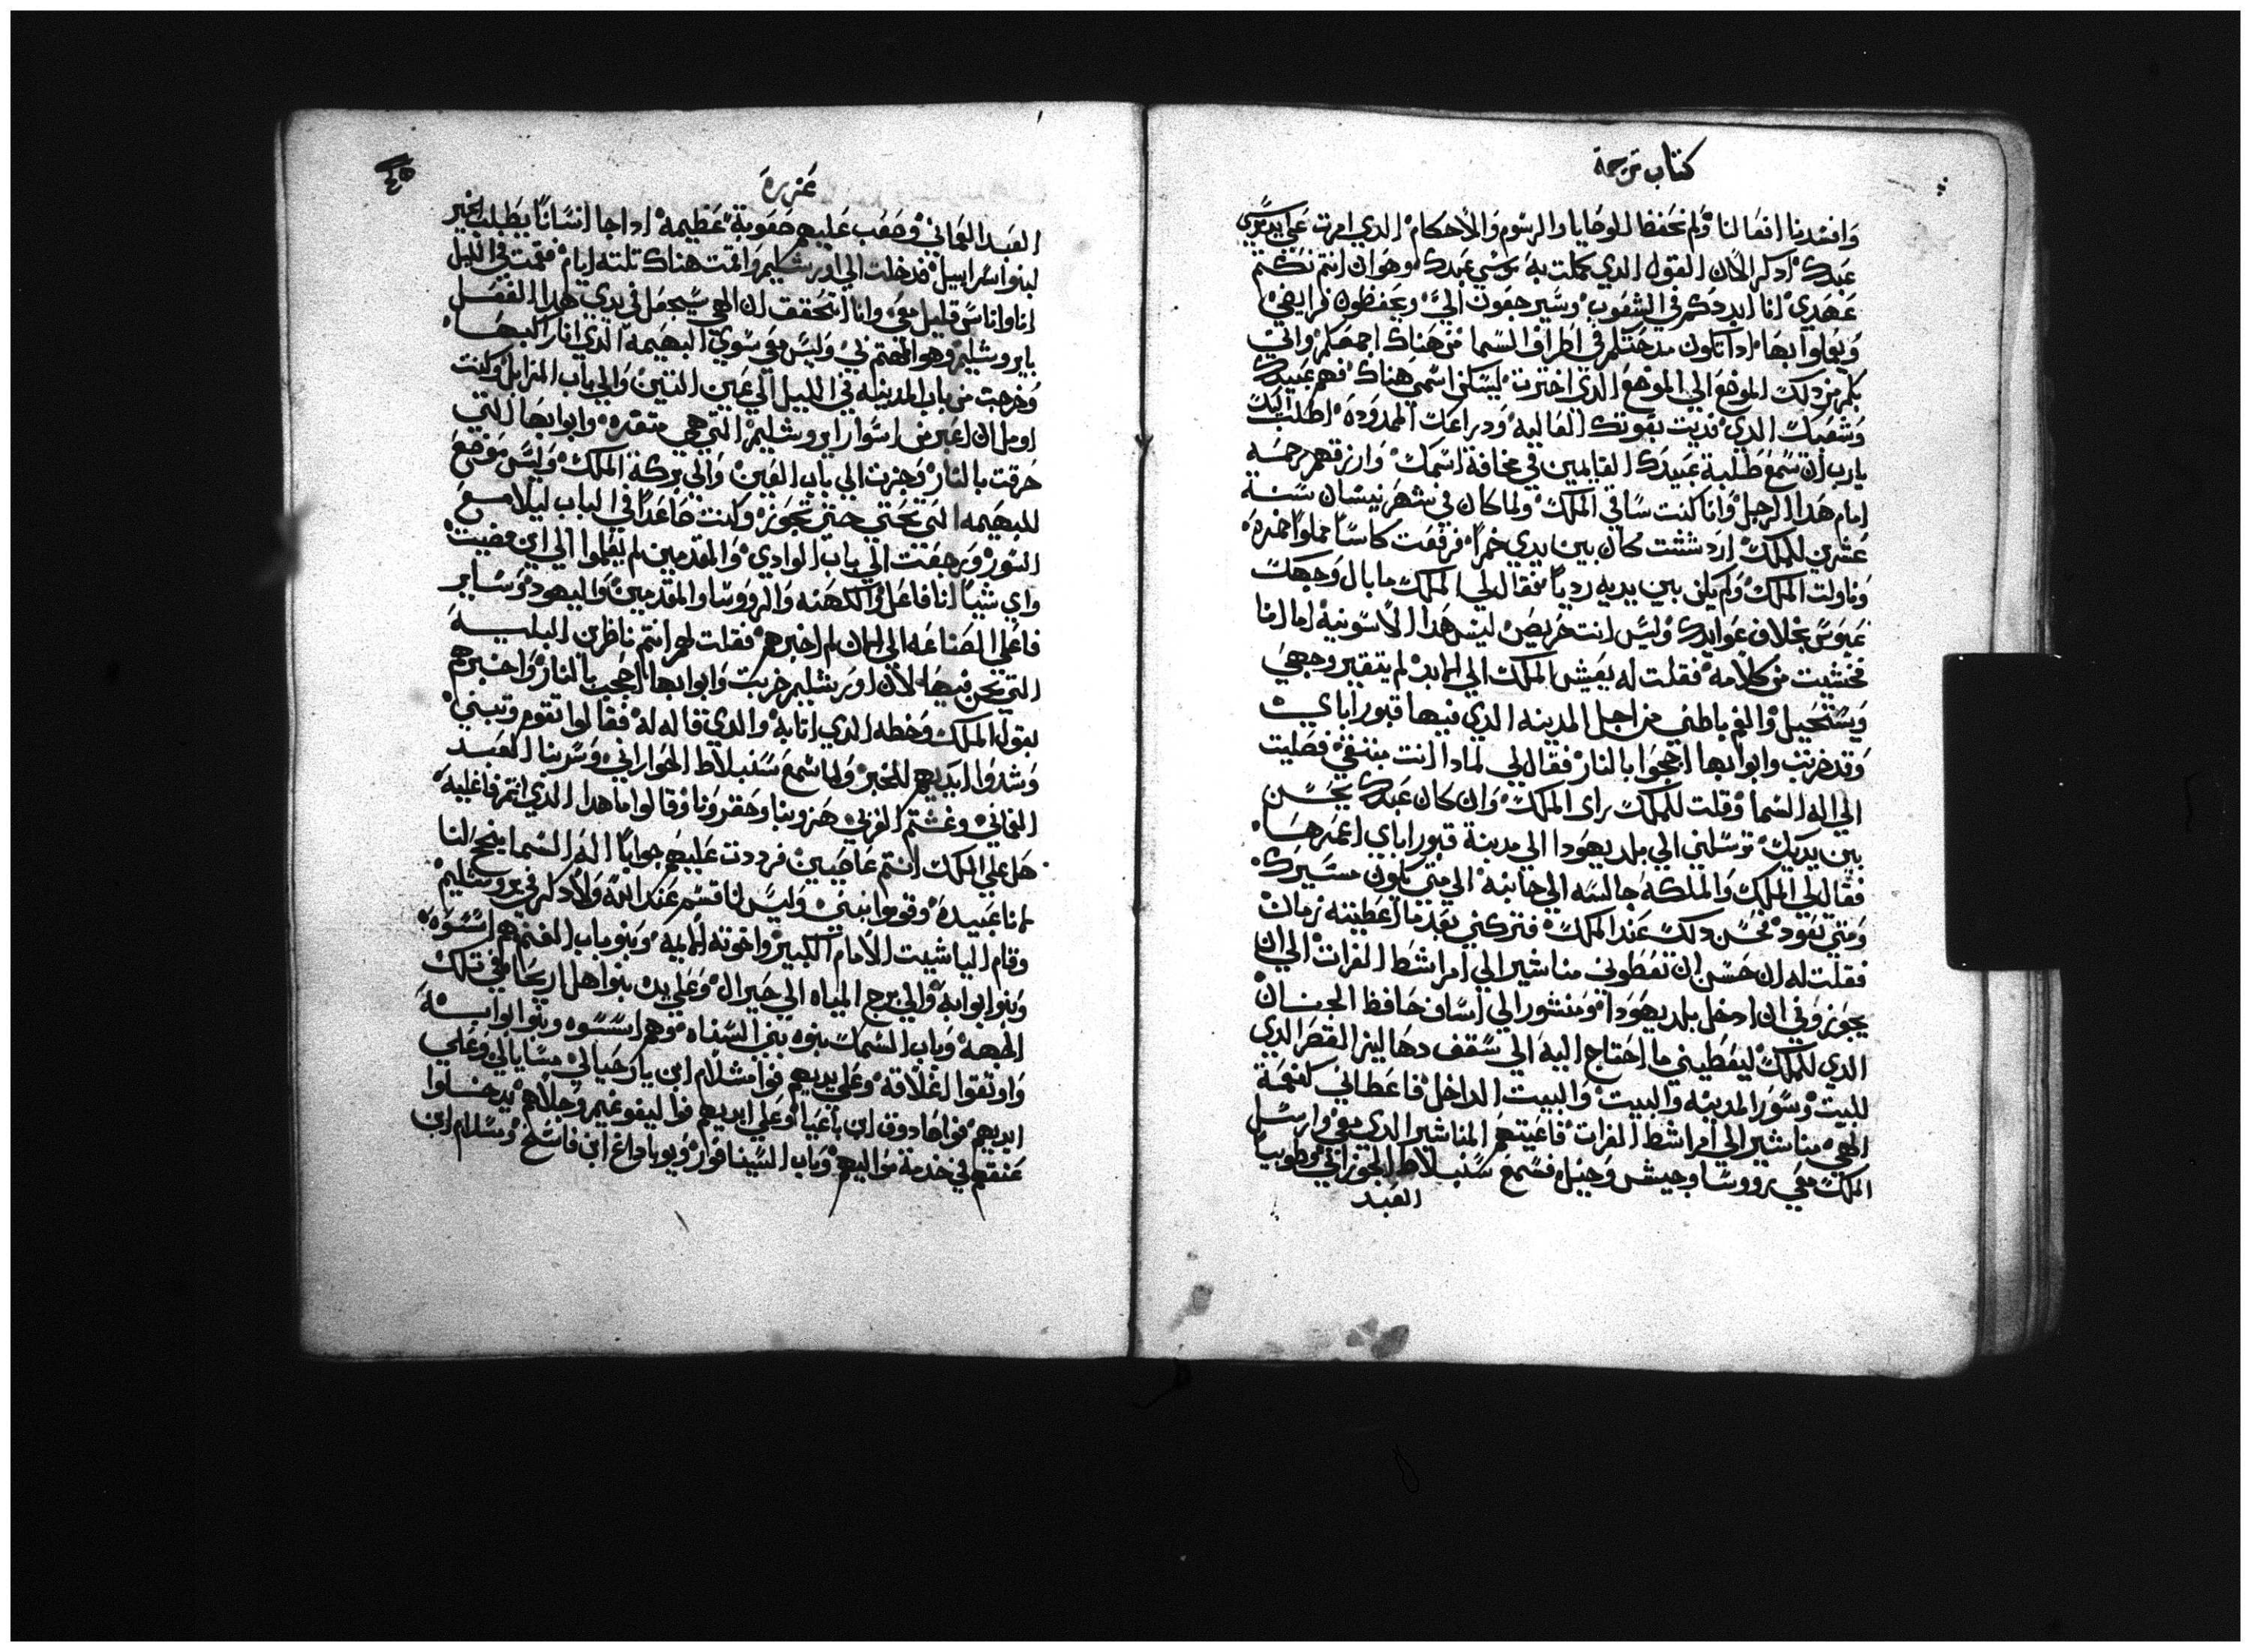 كتاب ترجمة
وافسدنا افعالنا ولم نحفظ الوصايا والرسوم والاحكام الدي امرت علي يد موسي
عبدك ادكر الان القول الدي كملت به موسي عبدك وهو ان انتم نكتتم
عهدي انا ابددكم في الشعوب وسيرجعون الي ويحفظون فرايضي
ويعلوا بها ادا تكون مدحتكم في اطراف السما من هناك اجمعكم واتي
بكم من دلك الموضع الي الموضع الدي اخترت ليسكن اسمي هناك فهم عبيدك
وشعبك الدي فديت بقوتك العاليه ودراعك الممدوده اطلب اليك
يارب ان تسمع طلبة عبيدك القايمين في مخافة اسمك وارزقهم رحمه
امام هدا الرجل وانا كنت ساقي الملك ولما كان في شهر نيسان سنة
عشرين للملك اردششت كان بين يدي خمرا فرفعت كاسا مملوا خمره
وناولت الملك ولم يكن بين يديه رديا فقال لي الملك ما بال وجهك
عبوس بخلاف عوايدك وليس انت مريض ليس هدا الا سونيه اما انا
فخشيت من كلامه فقلت له يعيش الملك الي الابد لم يتغير وجهي
ويستحيل واغم باطني من اجل المدينه الدي فيها قبور اباي
وقد خربت وابوابها احجوا بالنار فقال لي لمادا انت بتنقي فصليت
الي اله السما وقلت للملك راي الملك وان كان عبدك يحسن
بين يديك ترسلني الي بلد يهودا الي مدينة قبور اباي اعمرها
فقال لي الملك والملكه جالسه الي جانبه الي متي يكون مسيرك
ومتي تعود فحسن دلك عند الملك فتركني بعد ما اعطيته زمان
فقلت له ان حسن ان تعطوني مناشير الي امرا شط الفرات الي ان
يجوزوني ان ادخل بلد يهودا ومنشور الي اساف حافظ الجنان
الدي للملك ليعطيني ما احتاج اليه الي سقف دهاليز القصر الدي
للبيت وسور المدينه والبيت والبيت الداخل فاعطاني كنعمة
الهي مناشير الي امرا شط الفرات فاعيتهم المناشير الدي معي وارسل
الملك معي رووسا وجيش وخيل فسمع سنبلاط الجوزاني وطوبيا
العبد
عزره
العبد العماني وصعب عليهم صعوبة عظيمه ادا جا انسانا يطلب الخير
لبنوا اسراييل فدخلت الي اورشليم واقمت هناك تلته ايام فقمت في الليل
انا واناس قليل معي وانا اتحقق ان الهي سيجعل في يدي هدا الفعل
بايروشليم وهو المهتم في وليس معي سوي البهيمه الدي انا راكبها
وخرجت من باب المدينه في الليل الي عين التين والي باب المزابل وكنت
اومل ان اعبر من اسوار ايروشليم التي هي متقره وابوابها التي
حرقت بالنار وجزت الي باب العين والي بركة الملك وليس موضع
للبهيمه التي تحتي حتي تجوز وكنت صاعدا في الباب ليلا مع
السور ورجعت الي باب الوادي والمقدمين لم يعلموا الي اين مضيت
واي شيا انا فاعل والكهنه والرووسا والمقدمين واليهود وساير
فاعلي الصناعه الي الان لم اخبرهم فقلت لهم انتم ناظرين البليه
التي نحن فيها لان اورشليم خربت وابوابها احجبت بالنار واخبرهم
بقول الملك وخطه الدي اتابه والدي قاله له فقالوا نقوم ونبني
وشدوا ايديهم للخبر ولما سمع سنبلاط الحوراني وسربنا العبد
العماني وغشتم العربي هزوبنا وحقرونا وقالوا ما هدا الدي انتم فاعليه
هل علي الملك انتم عاصيين فرددت عليهم جوابا اله السما ينجح لنا
لانا عبيده وقوموا نبني وليس لنا قسم عند الله ولا دكر في يروشليم
وقام الياشيت الامام الكبير واخوته الايمه وبنوا باب الغنم هم اسسوه
وبنوا بوابه والي برج المياه الي حيرال وعلي يده بنوا اهل اريحا في تلك
الجهه وباب السمك بنوه بني السناه وهم اسسوه وبنوا بوابه
واوتقوا اغلاقه وعلي يديهم قوا مشلام ابن يارخيا الي مسايالي وعلي
ايديهم قوا صادوق ابن باعنا وعلي ايديهم قوا ليفوغيم وجلاهم يدخلوا
عنقهم في خدمة مواليهم وباب السينا قوا ويوياداع ابن فاسح ومسلام ابن